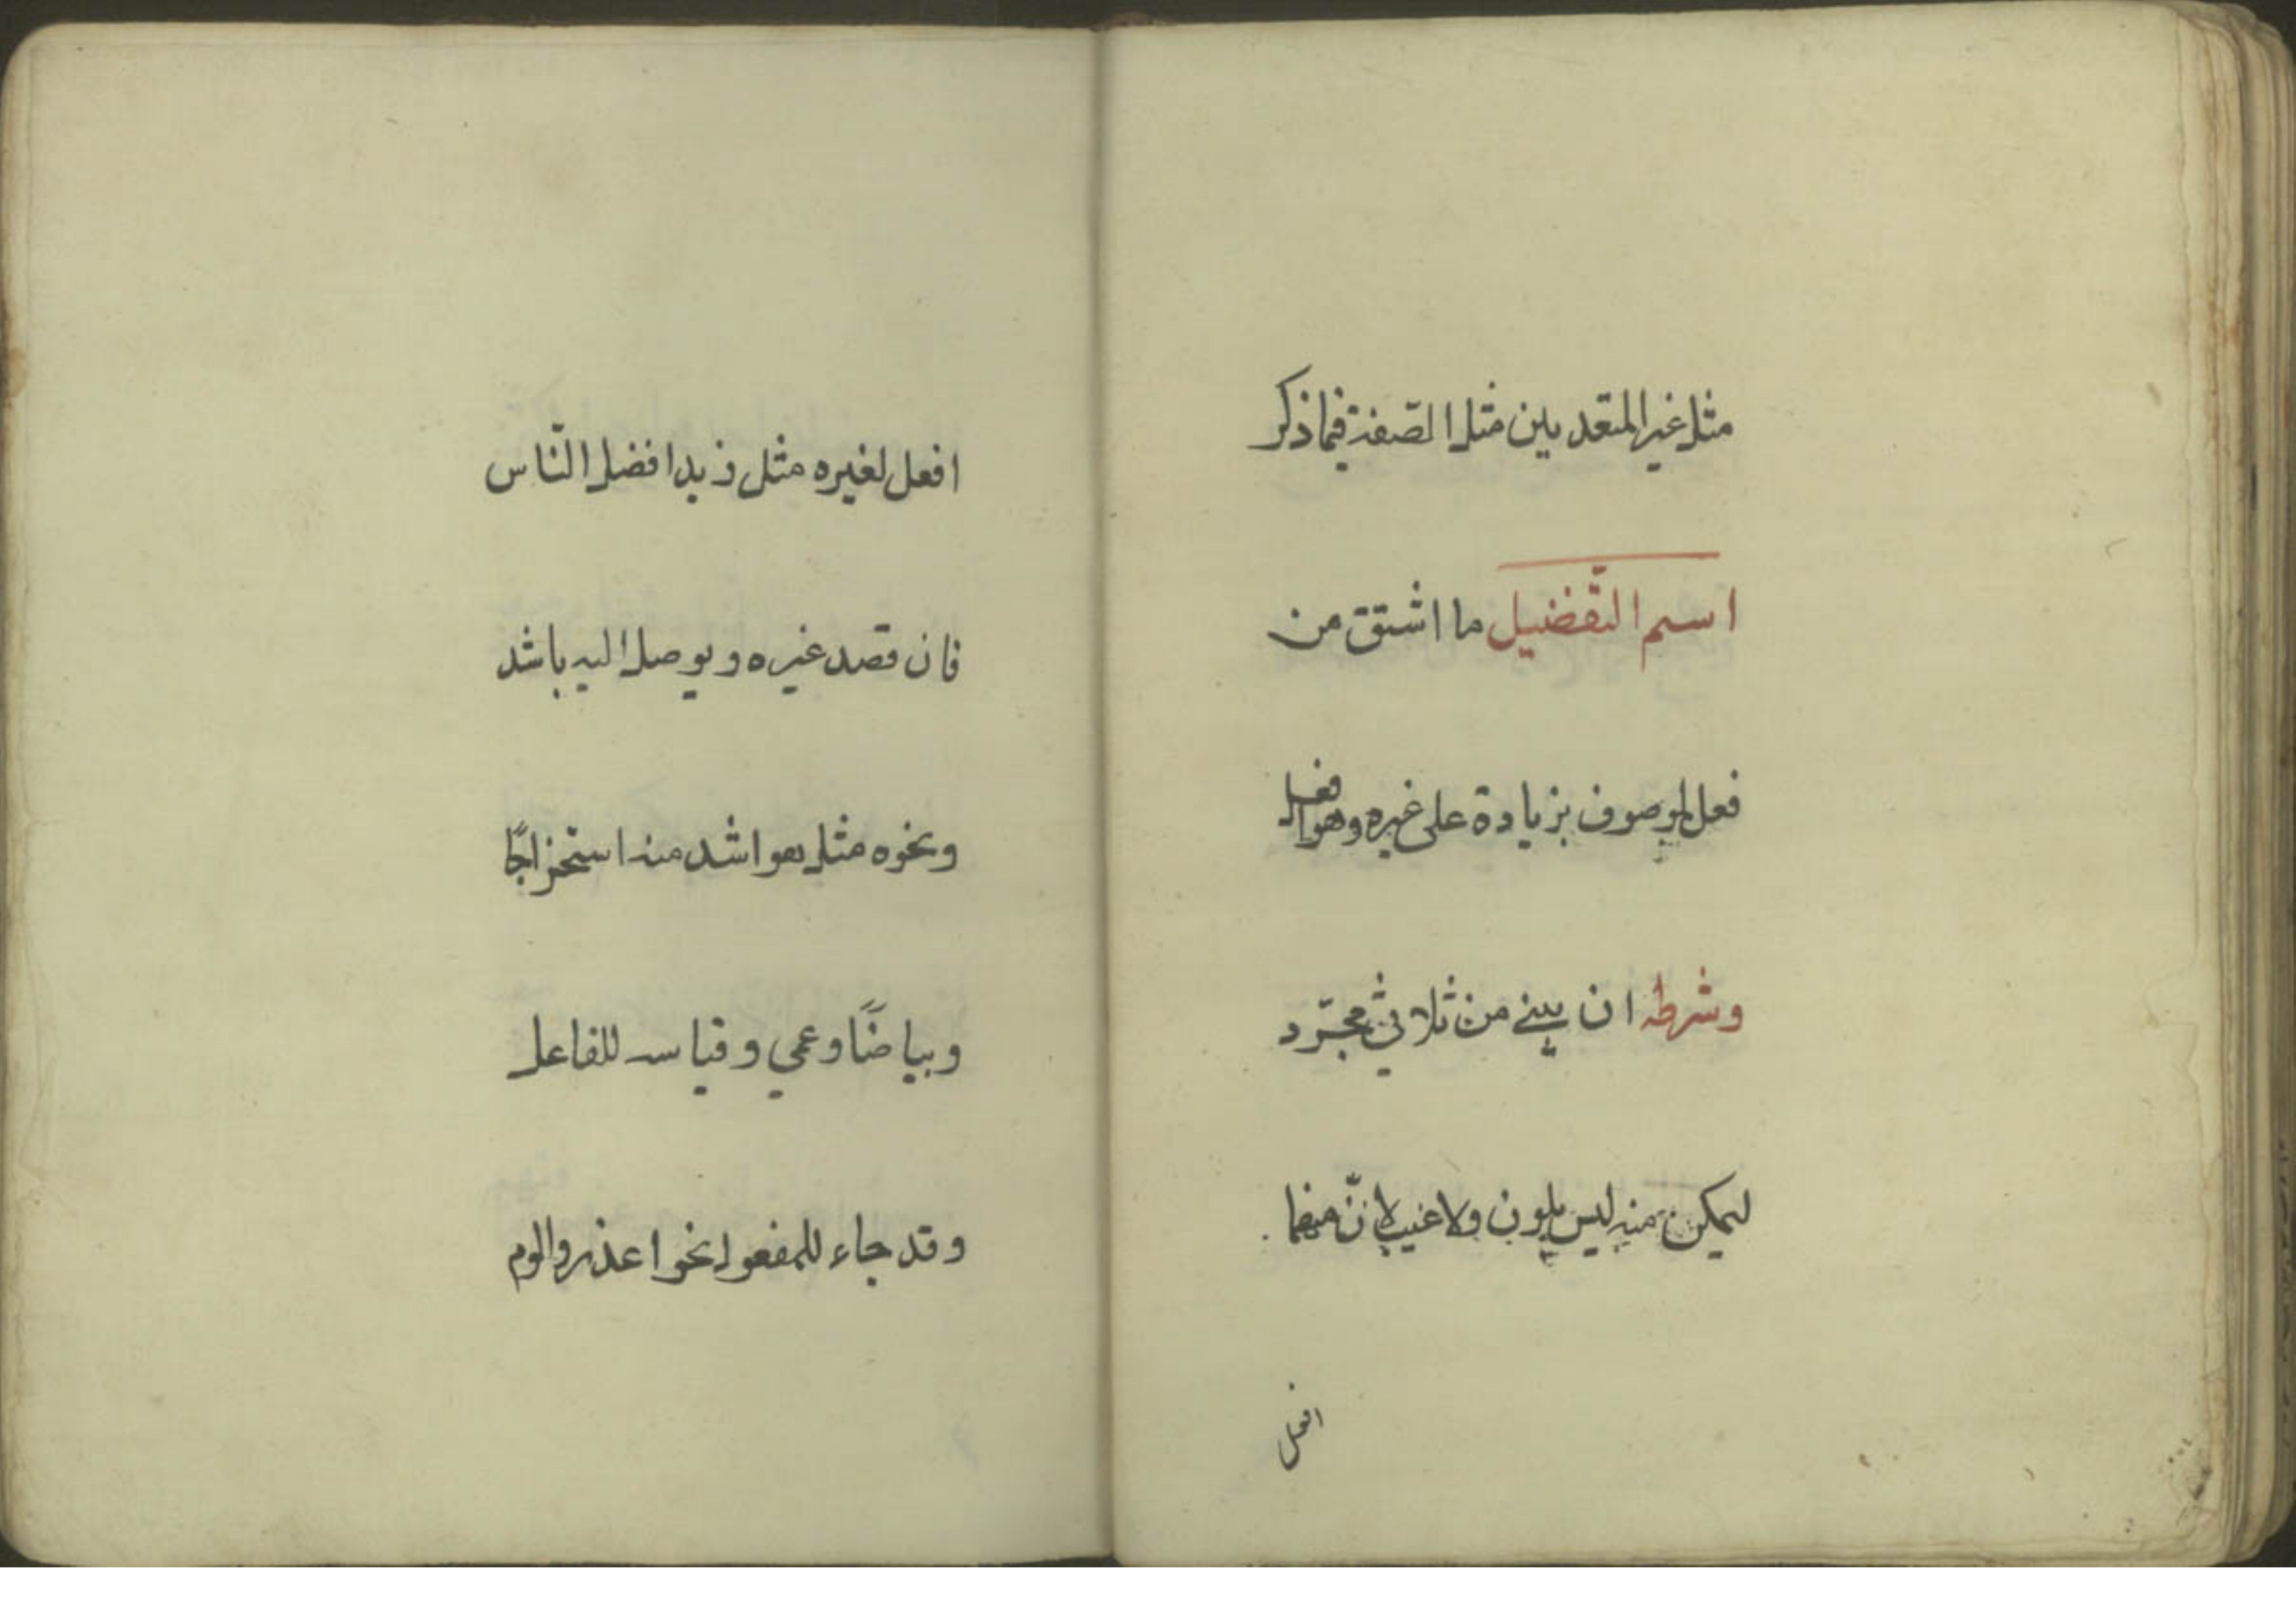 مثل غير المتعديين مثل الصّفة فيما ذكر
اسم التّفضيل ما اشتق من
فعل لموصوف بزيادة على غيره وهو افعل
وشرطه ان يبنى من ثلاثي مجرّد
ليمكن منه ليس بلون ولا عيب لانّ منهما
افعل
افعل لغيره مثل زيد افضل النّاس
فان قصد غيره ويوصل اليه باشد
ونحوه مثل هو اشد منه استخراجًا
وبياضًا وعمي وقياسه للفاعل
وقد جاء للمفعول نحو اعذر والوم